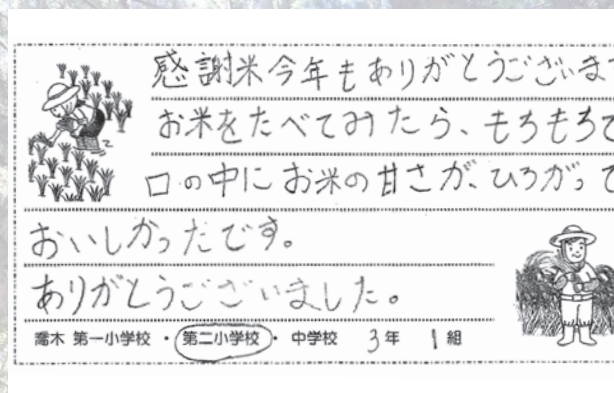 感謝米今年もありがとうございま
お米をたべてみたら、もちもちで
口の中にお米の甘さが、ひろがって
おいしかったです。
ありがとうございました。
喬木 第一小学校 ・ 第二小学校 ・ 中学校 3年 1組